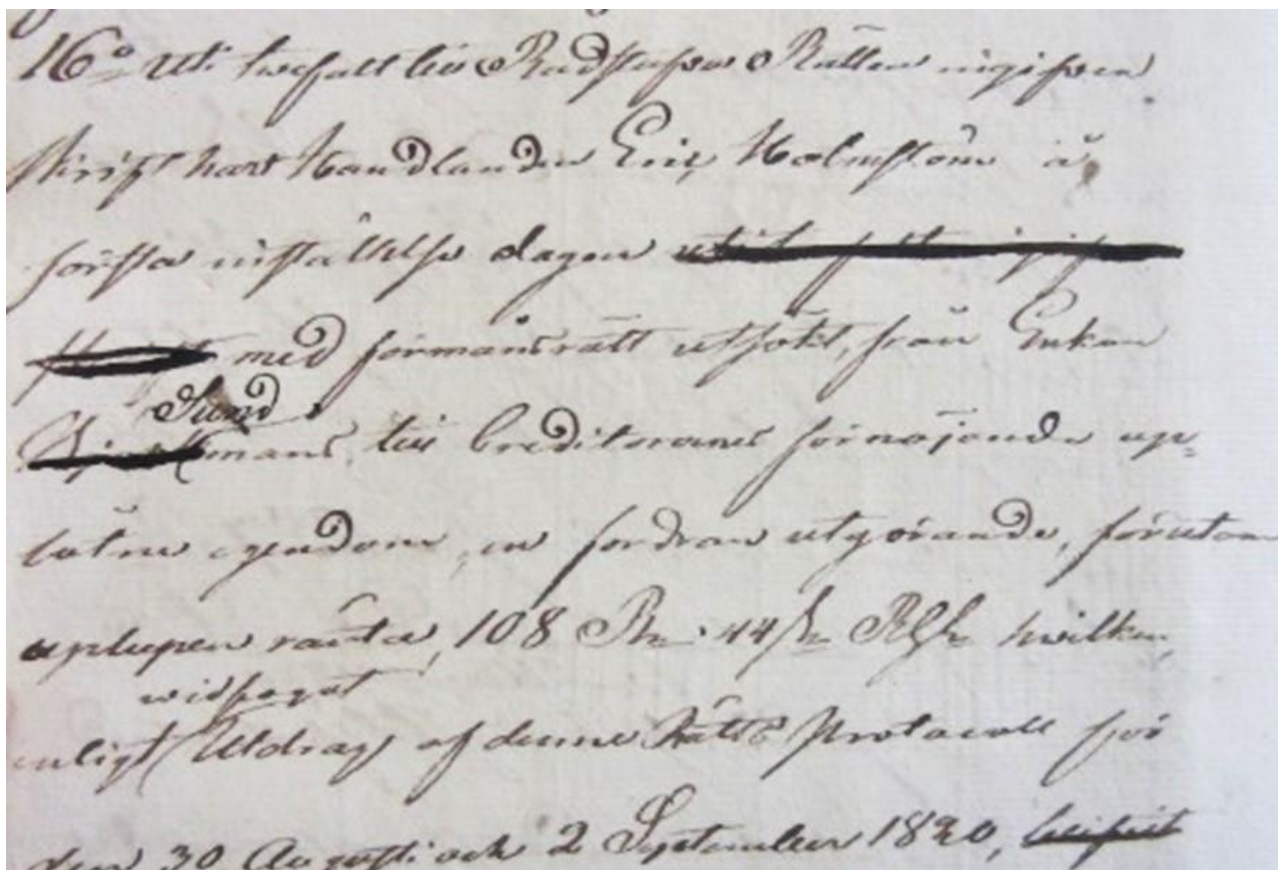 16:o Uti twefalt till Rådstufvu Rätten ingifven
skrift har Handlanden Eric Holmström å
första inställelse dagen
med förmånsrätt utsökt, från Enkan
Sund
mans, till Creditorernes förnöjande up=
låtne egendom, en fordran utgörande, förutom
uplupen ränta, 108 Rdr 44 sk Rgs hvilken
widfogat
enligt Utdrag af denne Rätts Protocoll för
den 30 Augusti och 2 September 1820,